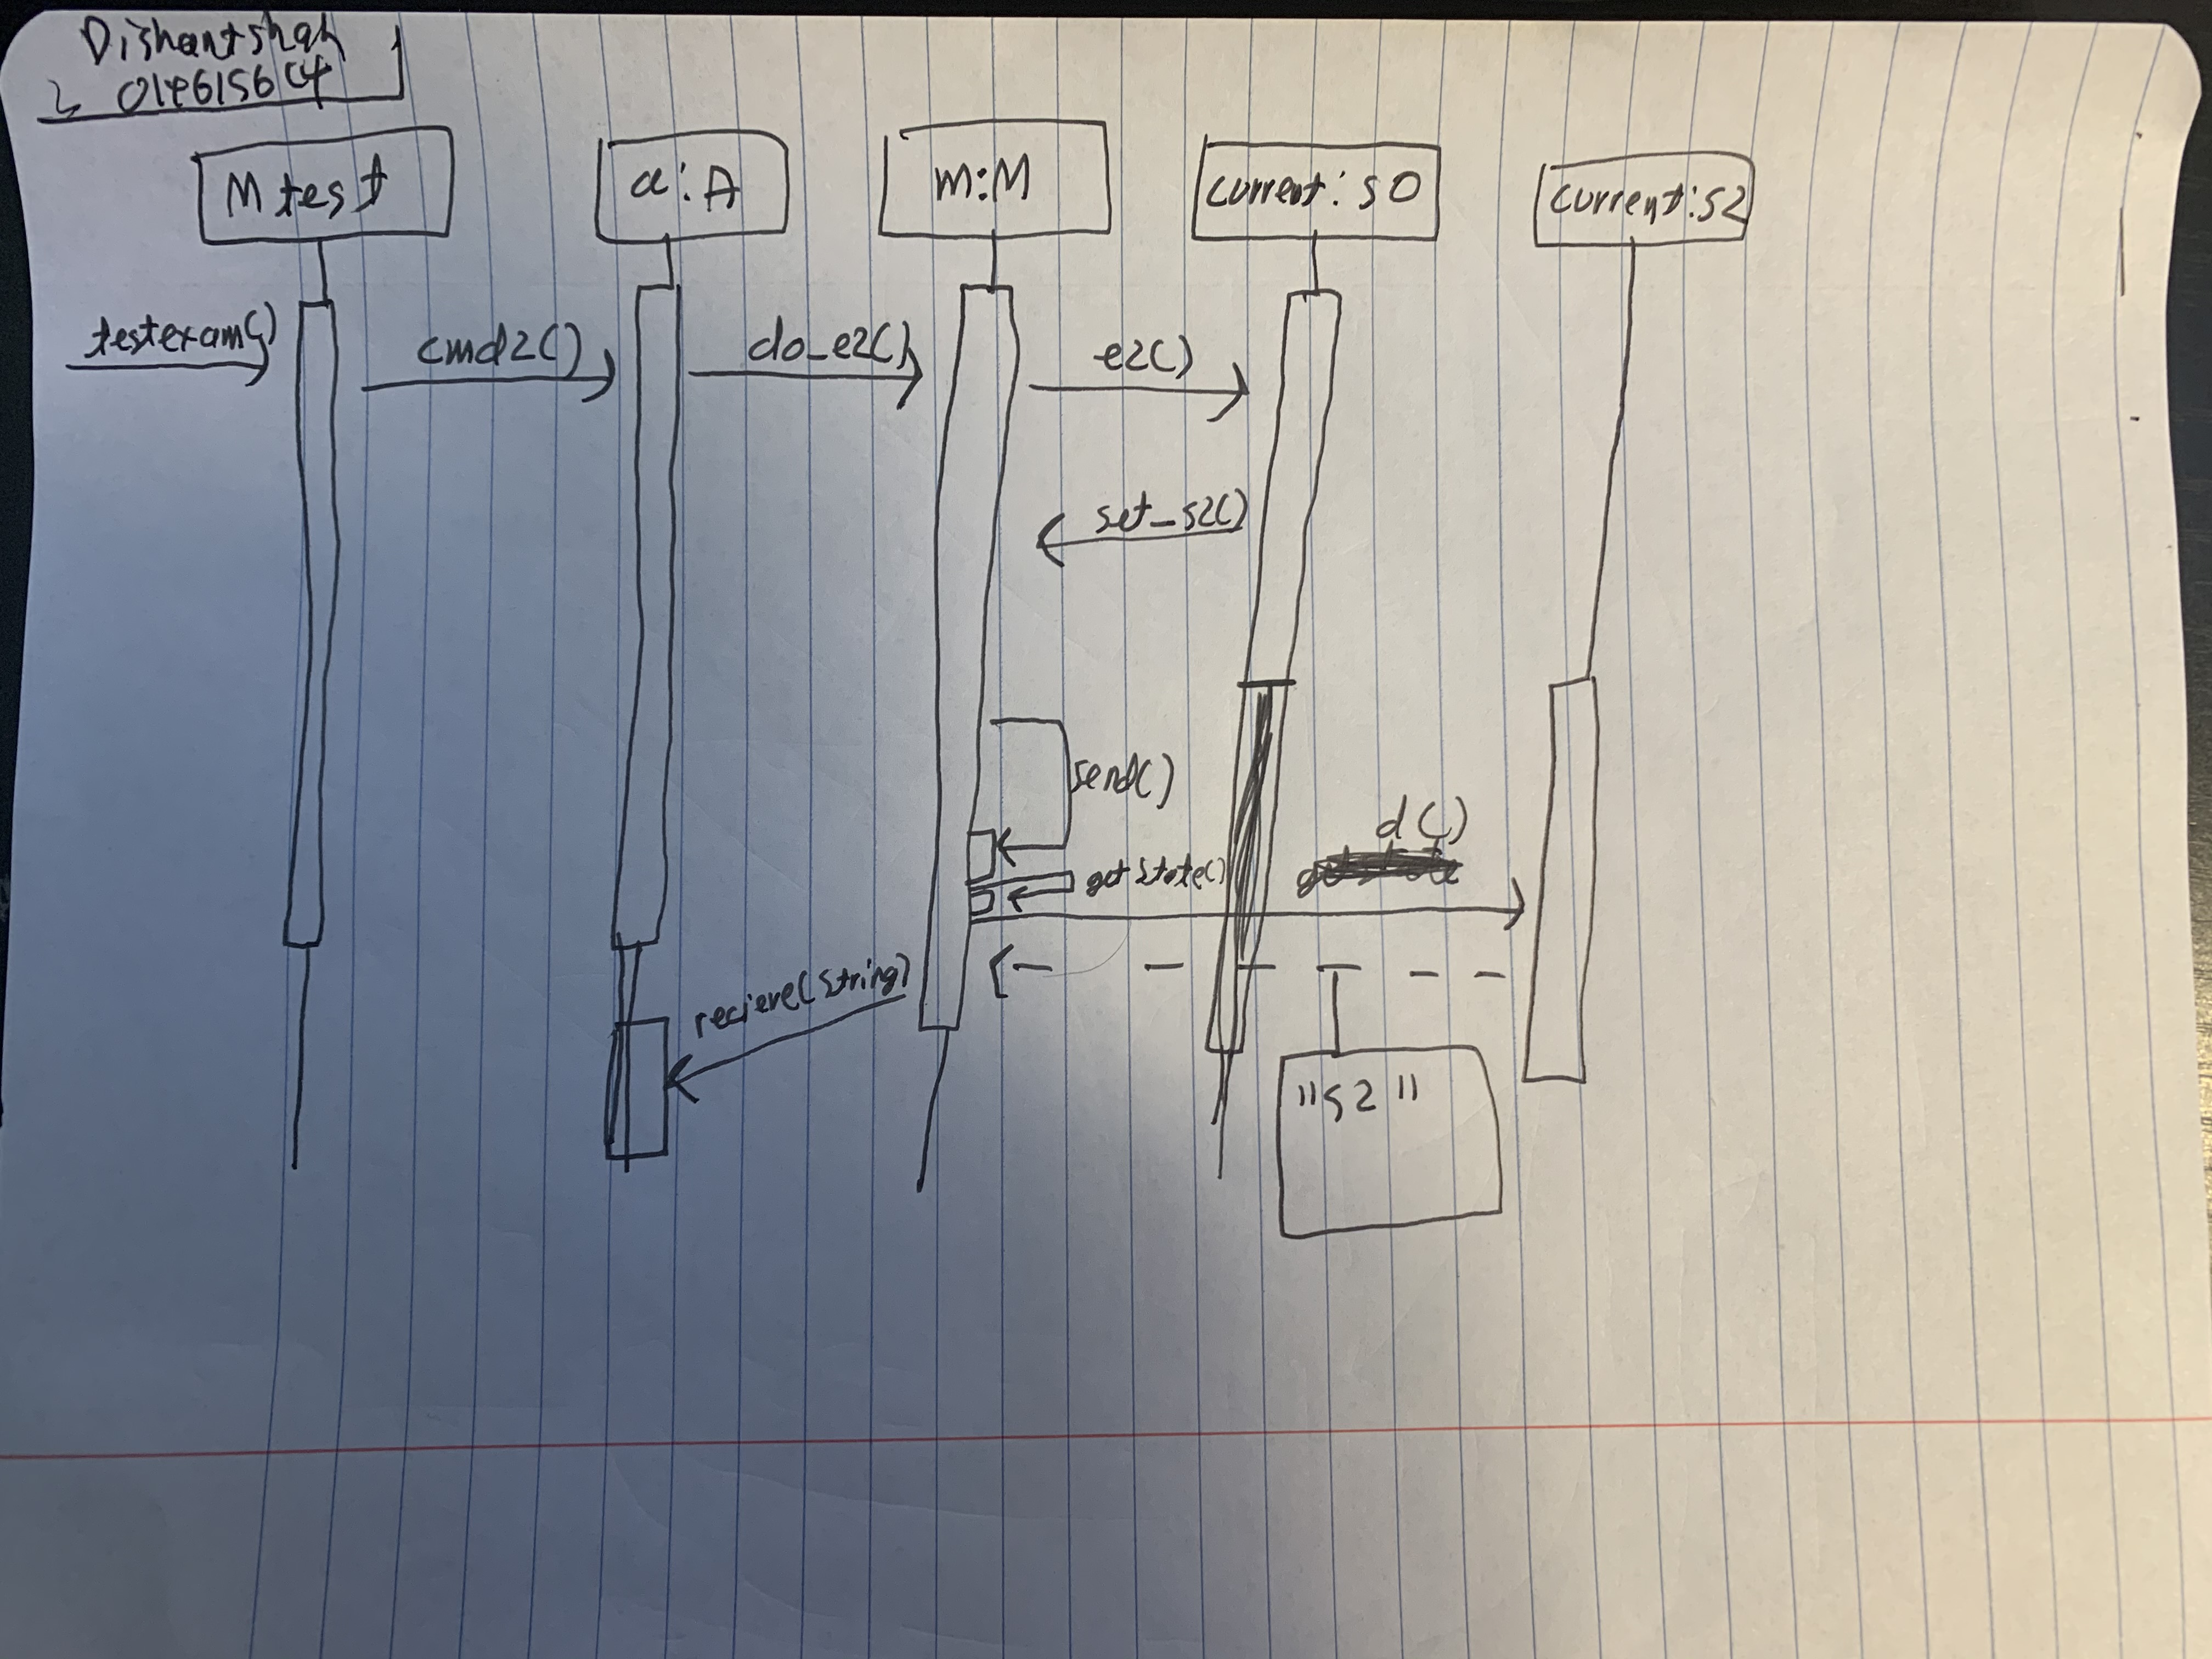 Dishantshah
Mtest
a:A
m:M
current:s0
current:s2
testexam()
cmd2()
do_e2()
e2()
set_s2()
send()
d()
getState()
recieve(String)
"S2"